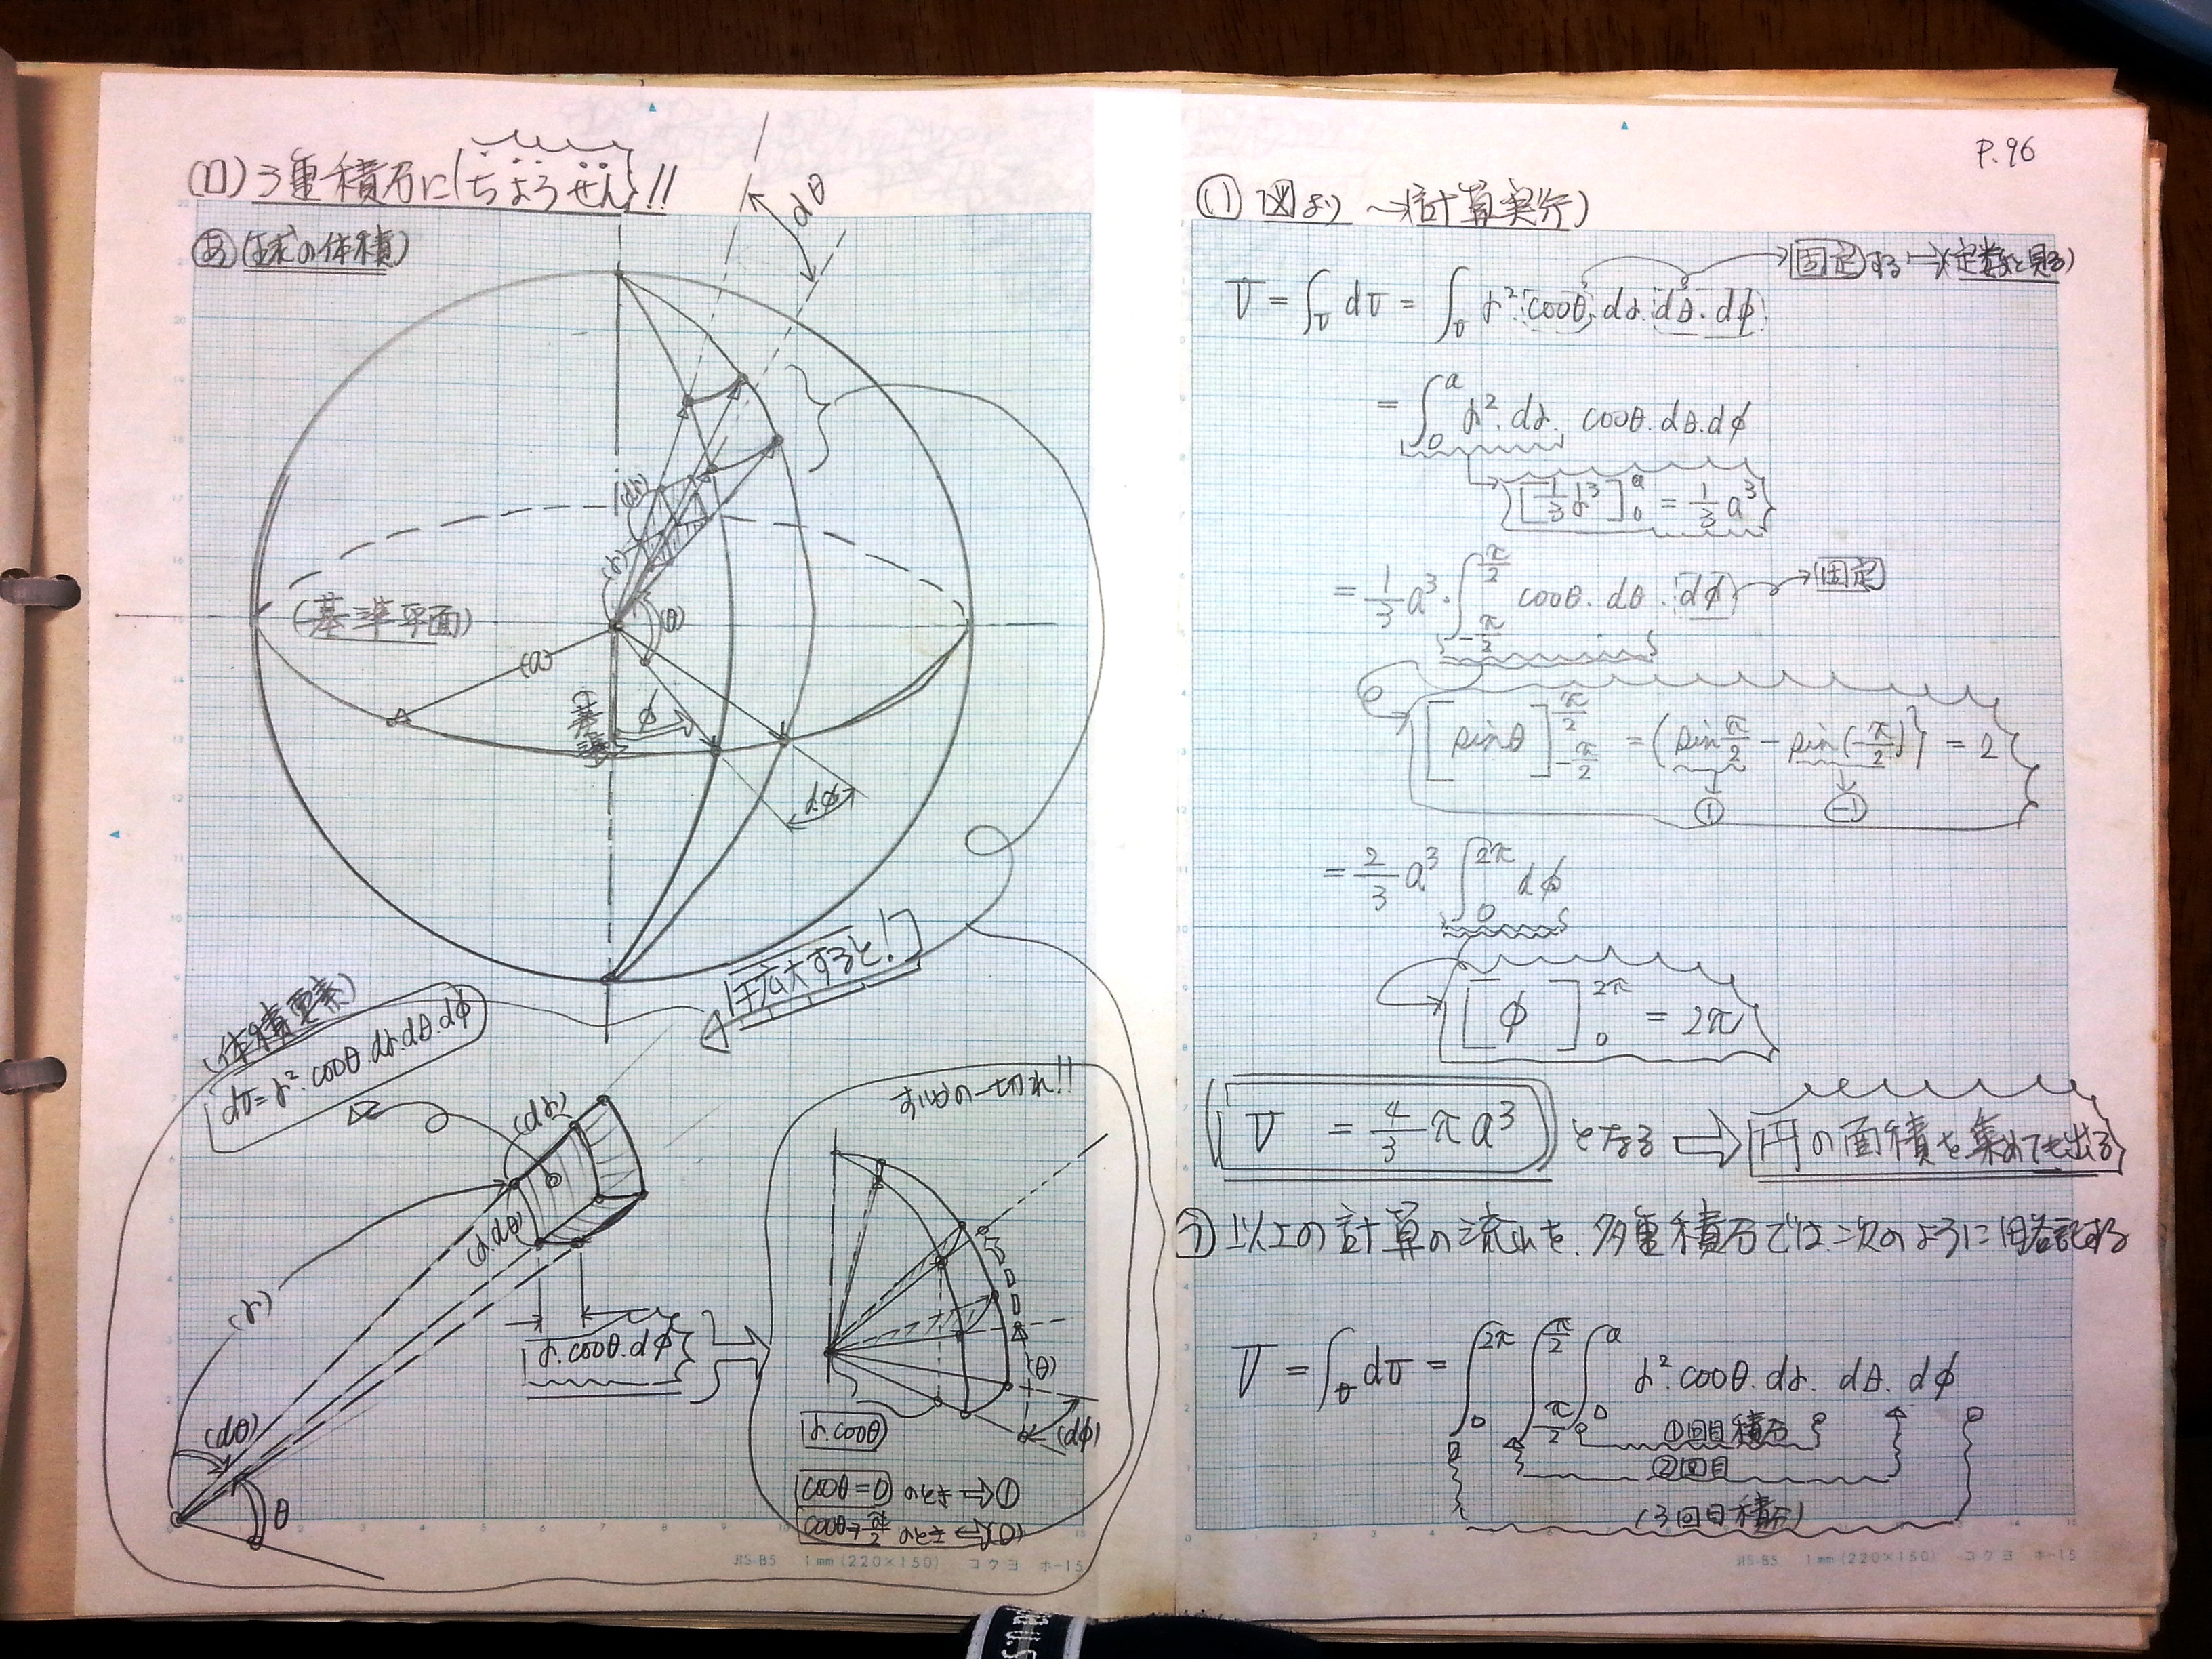 (ロ) 3重積分に(ちょうせん)!!
(あ)(球の体積)
dθ
(dr)
(r)
(θ)
(基準平面)
(a)
(基準)
φ
dφ
拡大すると!
(体積要素)
dv=r².cosθ.dr.dθ.dφ
(dr)
(r.dθ)
(r)
r.cosθ.dφ
(dθ)
θ
すいかの一切れ!!
(θ)
(dφ)
r.cosθ
cosθ=0 のとき ⇒①
cosθ→π/2 のとき ⇔(0)
JIS-B5 1mm(220×150) コクヨ ホ-15
P.96
(い) 図より 〜(計算実行)
固定する→(定数と見る)
V = ∫v dv = ∫v r².cosθ.dr.dθ.dφ
= ∫₀^a r².dr. cosθ.dθ.dφ
[1/3 r³]₀^a = 1/3 a³
= 1/3 a³.∫_{-π/2}^{π/2} cosθ.dθ.dφ → 固定
[sinθ]_{-π/2}^{π/2} = {sin π/2 - sin(-π/2)} = 2
① (-1)
= 2/3 a³ ∫₀^{2π} dφ
[φ]₀^{2π} = 2π
V = 4/3 πa³ となる ⇒ 円の面積を集めても出る
(う) 以上の計算の流れを、多重積分では、次のように略記する
V = ∫v dv = ∫₀^{2π} ∫_{π/2}^{π/2} ∫₀^a r².cosθ.dr. dθ. dφ
①回目積分
②回目
(3回目積分)
JIS-B5 1mm(220×150) コクヨ ホ-15